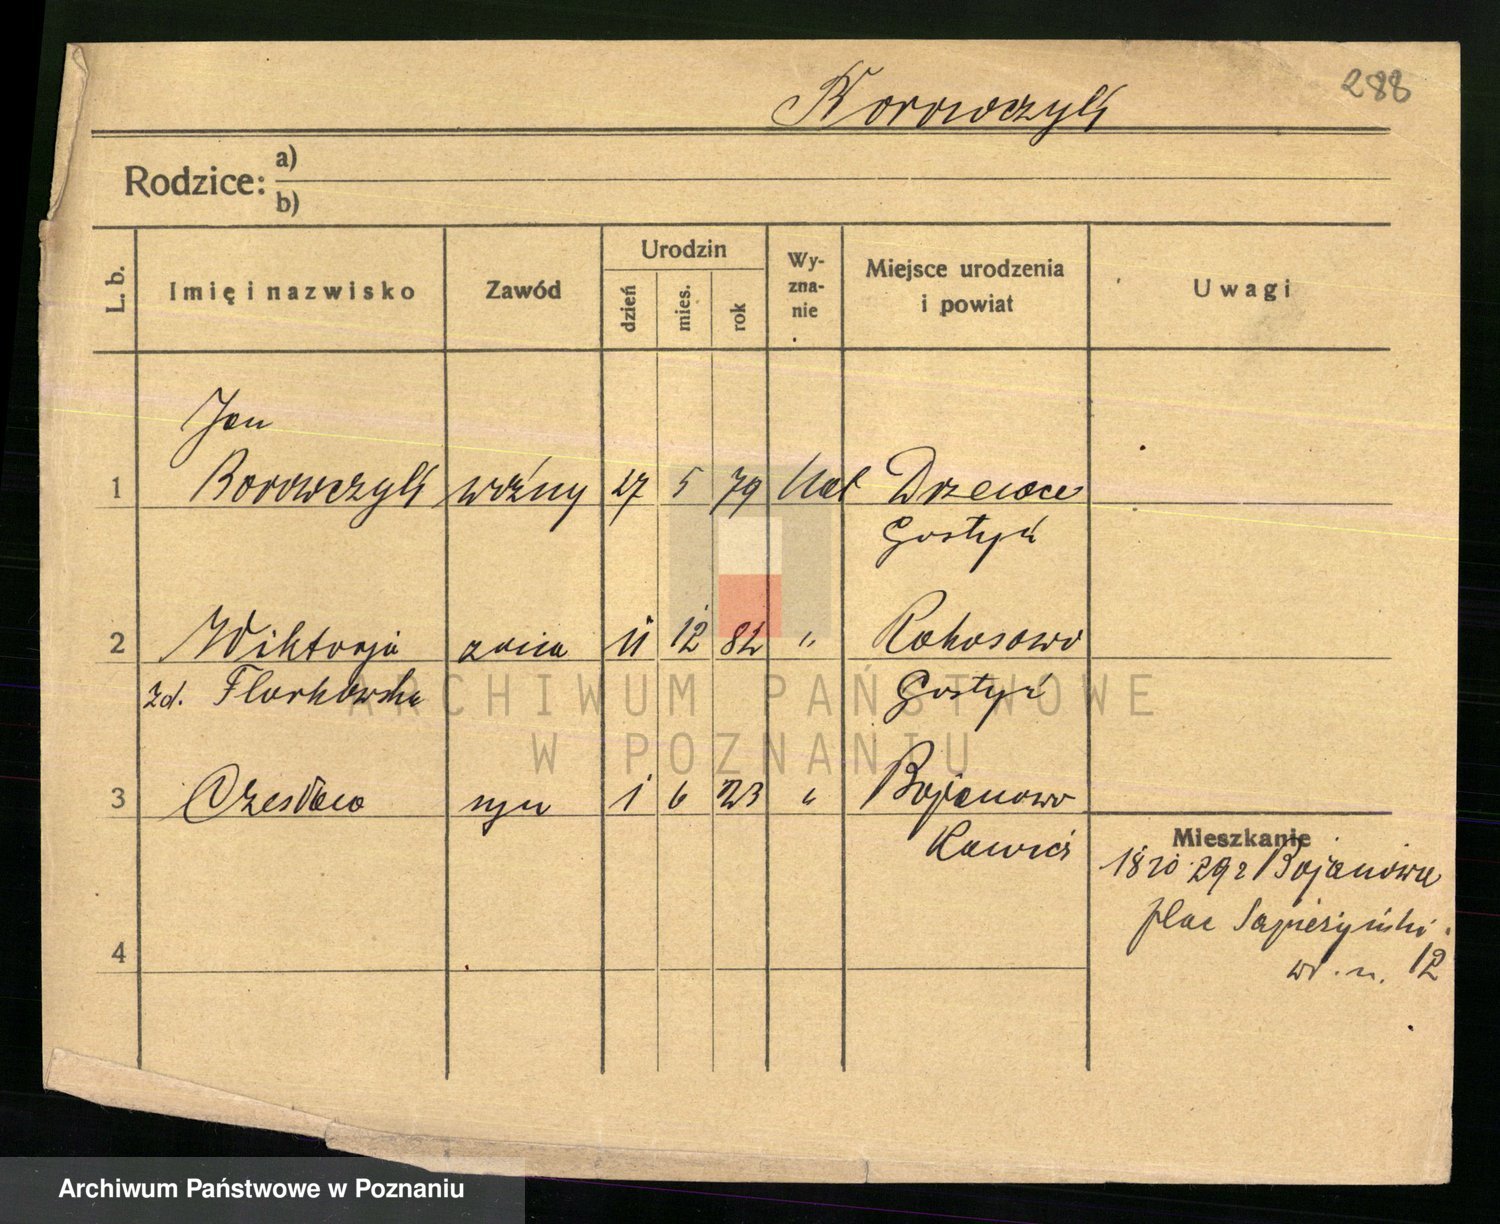 288
Borowczyk
Rodzice: a)
b)
L. b.
Imię i nazwisko
Zawód
Urodzin
dzień
mies.
rok
Wy-
zna-
nie
Miejsce urodzenia
i powiat
Uwagi
Jan
1 Borowczyk woźny 27 5 79 kat Drzewce
Gostyń
2 Wiktorja żona 11 12 82 " Rokosowo
zd. Florkowska Gostyń
3 Czesław syn 1 6 23 " Bojanowo
Rawicz
Mieszkanie
18 10 29 z Bojanowa
plac Sapieżyński
12
4
ARCHIWUM PAŃSTWOWE
W POZNANIU
Archiwum Państwowe w Poznaniu